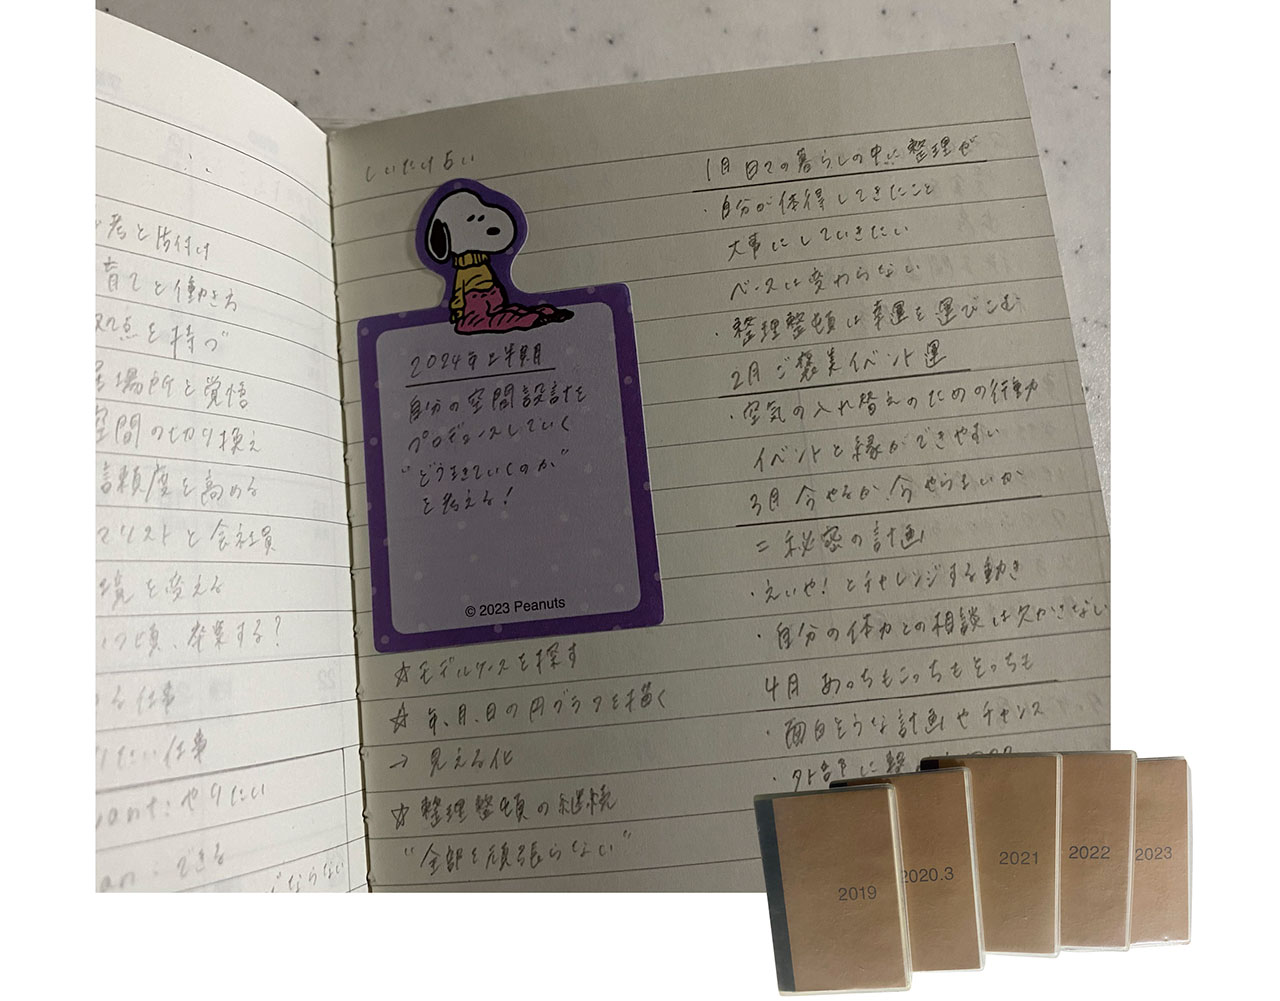 考と片付け
育てと働き方
点を持つ
場所と覚悟
空間の切り換え
頼度を高める
リストと会社員
境を変える
頃、卒業する?
る仕事
たい仕事
ont:やりたい
an:できる
ならない
しいたけ占い
2024年上半期
自分の空間設計を
プロデュースしていく
"どう生きていくのか"
を考える!
© 2023 Peanuts
☆モデルケースを探す
☆年、月、日の円グラフを描く
→見える化
☆整理整頓の継続
"全部を頑張らない"
1月 日々の暮らしの中に整理が
・自分が体得してきたこと
大事にしていきたい
ベースは変わらない
・整理整頓は幸運を運びこむ
2月 ご褒美イベント運
・空気の入れ替えのための行動
イベントと縁ができやすい
3月 今やるか今やらないか
=秘密の計画
・えいや!とチャレンジする動き
・自分の体力との相談は欠かせない
4月 あっちもこっちもそっちも
・面白そうな計画やチャンス
・外部に
2019
2020.3
2021
2022
2023